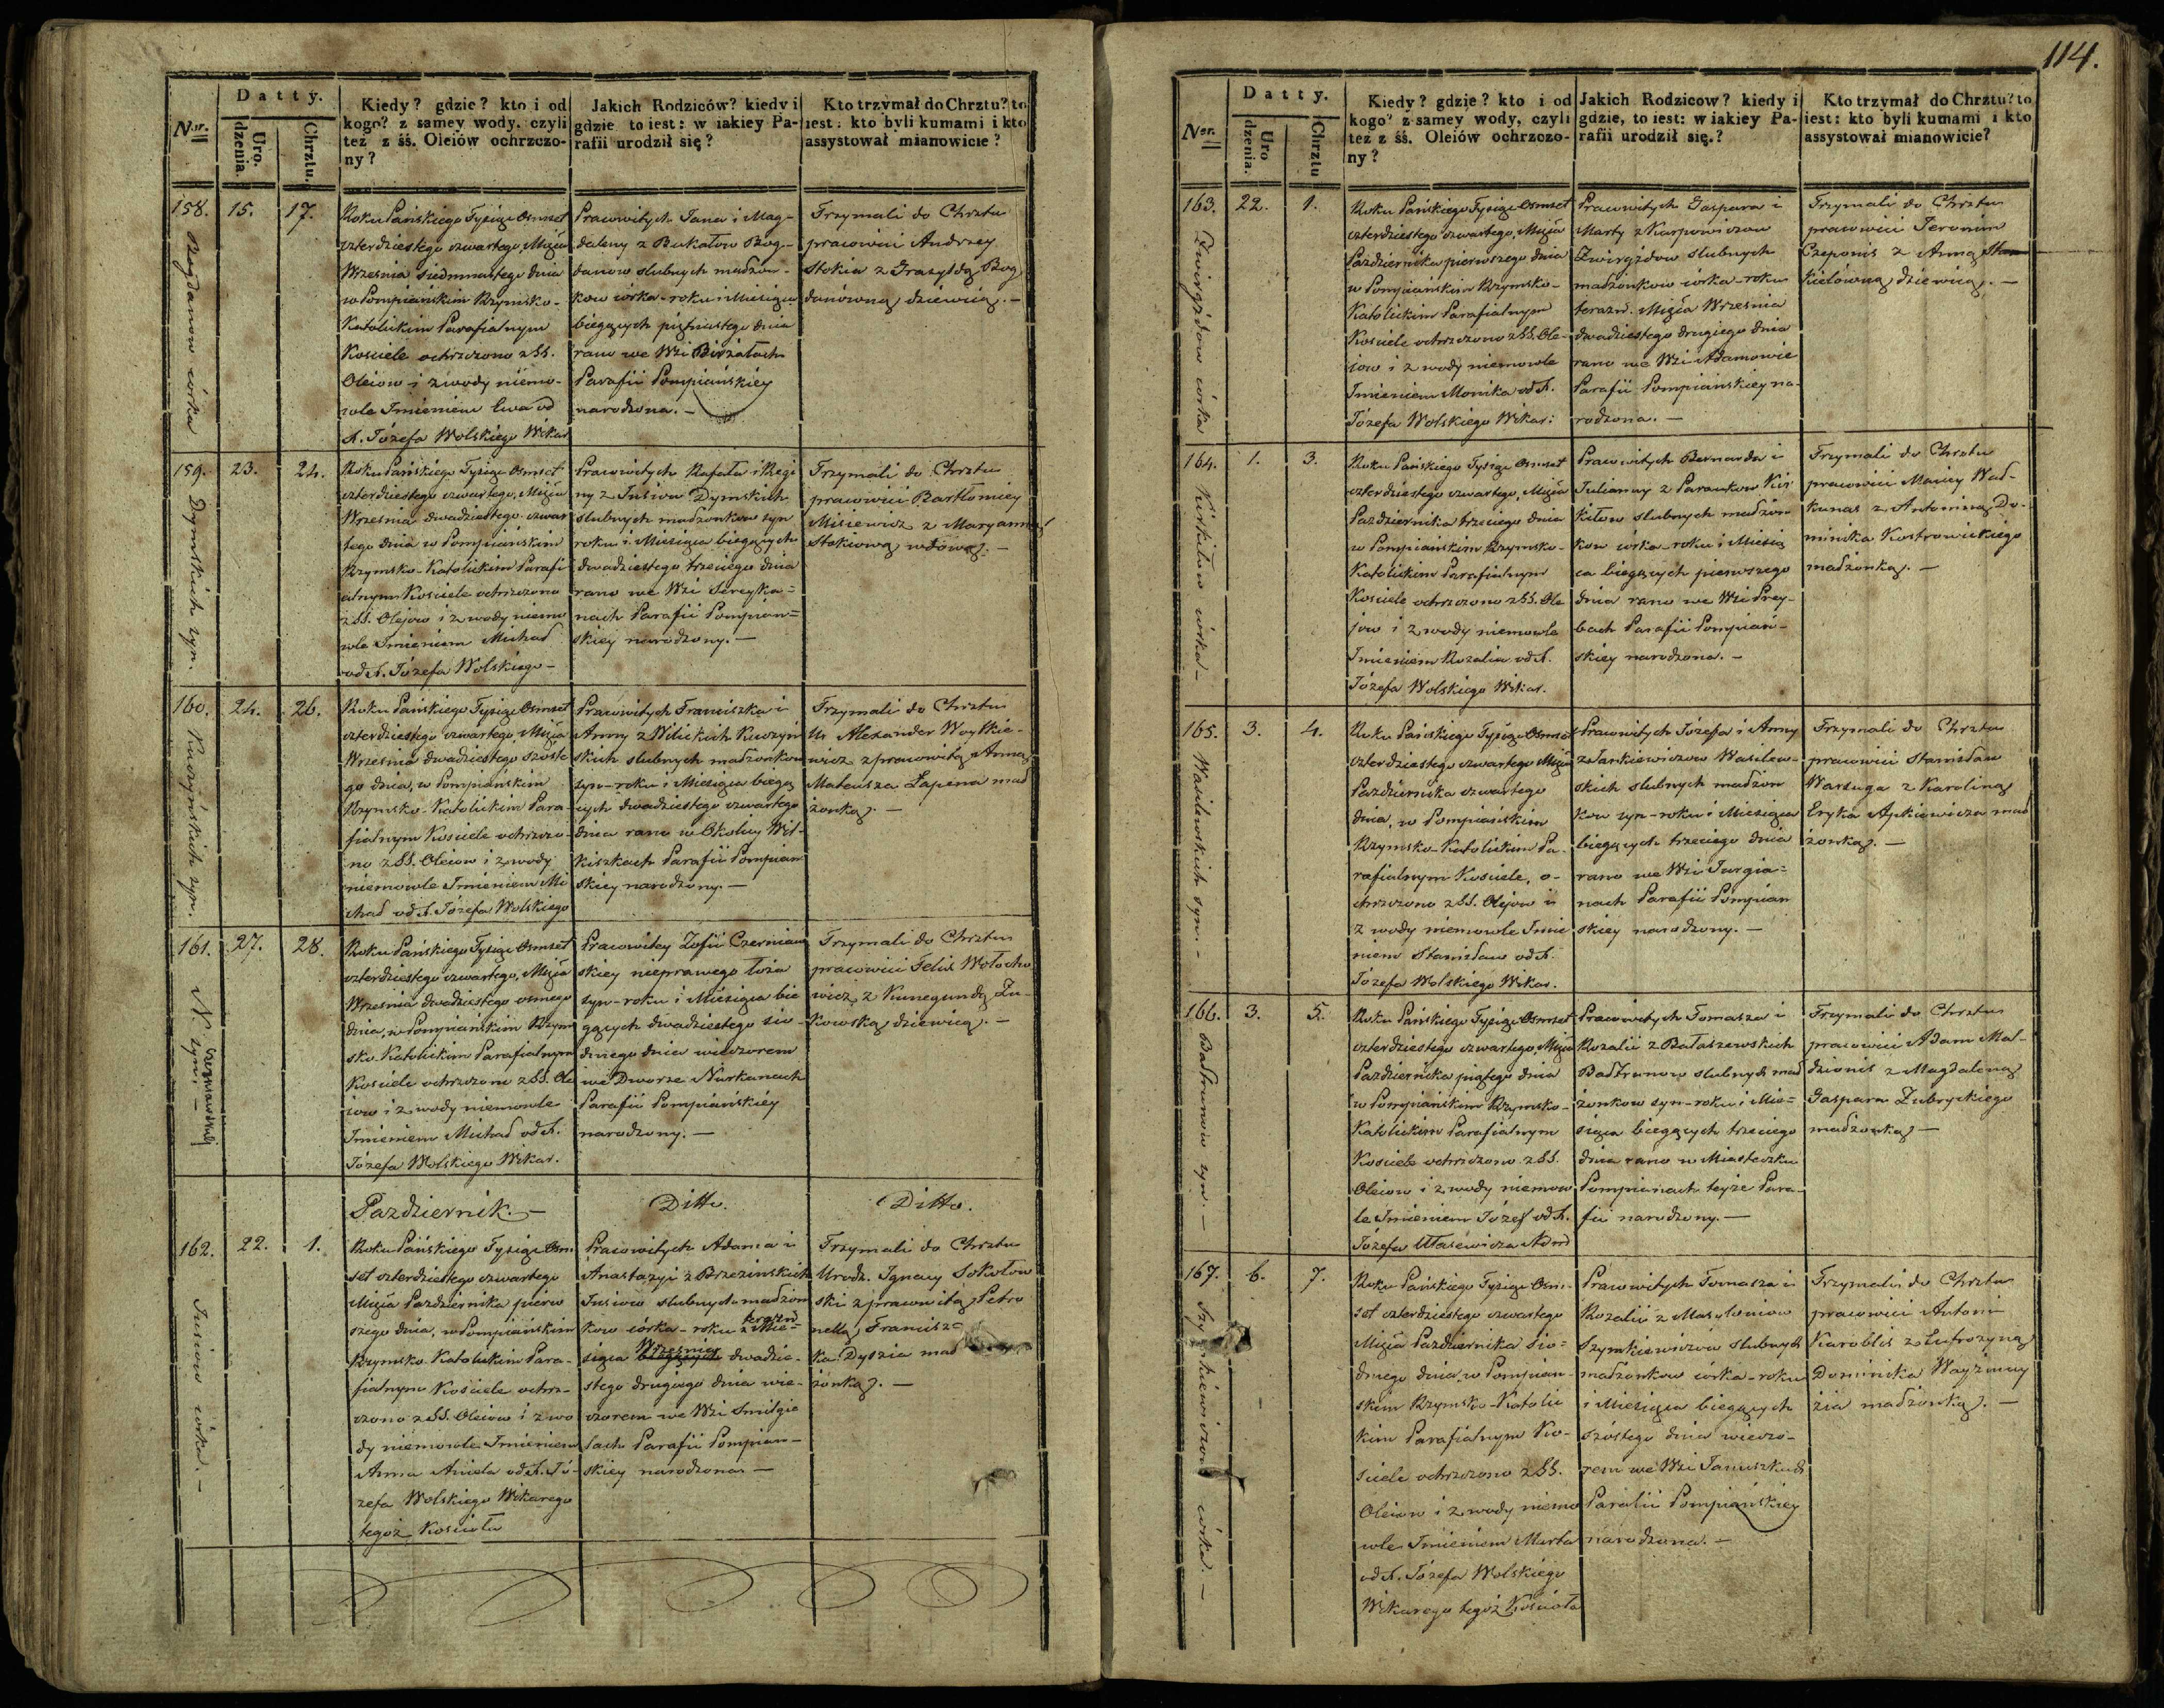 Datty.
Nr.
Uro.
dzenia
Chrztu.
Kiedy? gdzie? kto i od
kogo? z samey wody, czyli
też z śś. Oleiów ochrzczo-
ny?
Jakich Rodziców? kiedy i
gdzie to iest: w iakiey Pa-
rafii urodził się?
Kto trzymał do Chrztu? to
iest: kto byli kumami i kto
assystował mianowicie?
158.
15.
17.
Bogdanow córka
Roku Pańskiego Tysiąc Osmset
czterdziestego czwartego, Msca
Września siedmnastego dnia
w Pompiańskim Rzymsko-
Katolickim Parafialnym
Kościele ochrzczono z SS.
Oleiow i z wody niemo-
wle Imieniem Ewa od
X. Józefa Wolskiego Wikar
Pracowitych Jana i Mag-
daleny z Bukatow Bog-
danow slubnych madzon-
kow córka - roku i Miesiąca
biegących piętnastego dnia
rano we Wsi Birzałach
Parafii Pompiańskiey
narodzona. -
Trzymali do Chrztu
pracowici Andrzey
Stokia z Grazyldą Bog
danówną dziewicą. -
159.
23.
24.
Dymskich syn.
Roku Pańskiego Tysiąc Osmset
czterdziestego czwartego, Msca
Września dwadziestego czwar
tego dnia w Pompiańskim
Rzymsko-Katolickim Parafi
alnym Kosciele ochrzczono
z SS. Olejow i z wody niemo
wle Imieniem Michał
od X. Józefa Wolskiego -
Pracowitych Rafała i Regi
ny z Jusiow Dymskich
slubnych madzonkow syn
roku i Miesiąca biegących
dwadziestego trzeciego dnia
rano we Wsi Sereyka=
nach Parafii Pompian=
skiey narodzony. -
Trzymali do Chrztu
pracowici Bartłomiey
Misiewicz z Maryanną
Stokiową wdową. -
160.
24.
26.
Kuczyńskich syn.
Roku Pańskiego Tysiąc Osmset
czterdziestego czwartego, Msca
Września dwadziestego szoste
go dnia, w Pompiańskim
Rzymsko-Katolickim Para-
fialnym Kosciele ochrzczo-
no z SS. Oleiow i z wody
niemowle Imieniem Mi
chał od X. Józefa Wolskiego
Pracowitych Franciszka i
Anny z Wilickich Kuczyń
skich slubnych madzonkow
syn - roku i Miesiąca biegą
cych dwadziestego czwartego
dnia rano w Okolicy Wil-
kiszkach Parafii Pompian
skiey narodzony. -
Trzymali do Chrztu
Ur Alexander Woytkie-
wicz z pracowitą Anną
Mateusza Łapena mał
żonką. -
161.
27.
28.
N. Czerniawskiey
syn. -
Roku Pańskiego Tysiąc Osmset
czterdziestego czwartego, Msca
Września dwadziestego osmego
dnia, w Pompiańskim Rzym
sko Katolickim Parafialnym
Kosciele ochrzczono z SS. Ole
iow i z wody niemowle
Imieniem Michał od X.
Józefa Wolskiego Wikar.
Pracowitey Zofii Czerniaw
skiey nieprawego łoża
syn - roku i Miesiąca bie
gących dwadziestego sio-
dmego dnia wieczorem
we Dworze Nurkanach
Parafii Pompiańskiéy
narodzony. -
Trzymali do Chrztu
pracowici Felix Wołocho
wicz z Kunegundą Zu-
kowską dziewicą. -
Pazdziernik. -
Ditto.
Ditto.
162.
22.
1.
Jusiow córka. -
Roku Pańskiego Tysiąc Osm
set czterdziestego czwartego
Msca Pazdziernika pierw
szego dnia, w Pompiańskim
Rzymsko Katolickim Para-
fialnym Kosciele ochrz-
czono z SS. Oleiow i z wo
dy niemowle Imieniem
Anna Aniela od X. Jó-
zefa Wolskiego Wikarego
tegoż Kosciola
Pracowitych Adama i
Anastazyi z Brzezinskich
Jusiow slubnych madzon
kow córka - roku terazn i Mie=
siąca biegących Września dwadzie-
stego drugiego dnia wie-
czorem we Wsi Smilgie
lach Parafii Pompian-
skiey narodzona. -
Trzymali do Chrztu
Urodz. Ignacy Sokołow
ski z pracowitą Petro
nellą Francisz=
ka Dyszia mał
żonką. -
114.
Datty.
Nr.
Uro
dzenia.
Chrztu
Kiedy? gdzie? kto i od
kogo? z samey wody, czyli
też z śś. Oleiów ochrzczo-
ny?
Jakich Rodzicow? kiedy i
gdzie, to iest: w iakiey Pa-
rafii urodził się.?
Kto trzymał do Chrztu? to
iest: kto byli kumami i kto
assystował mianowicie?
163.
22.
1.
Zwirgzdow córka
Roku Pańskiego Tysiąc Osmset
czterdziestego czwartego, Msca
Pazdziernika pierwszego dnia
w Pompianskim Rzymsko-
Katolickim Parafialnym
Kosciele ochrzczono z SS. Ole-
iow i z wody niemowle
Imieniem Monika od X.
Józefa Wolskiego Wikar:
Pracowitych Gaspara i
Marty z Karpowiczow
Zwirgzdow slubnych
madzonkow córka - roku
terazn. Msca Wrzesnia
dwadziestego drugiego dnia
rano we Wsi Adamowie
Parafii Pompiańskiey na-
rodzona. -
Trzymali do Chrztu
pracowici Jeronim
Czeponis z Anną
Kielówną dziewicą. -
164.
1.
3.
Kirkiłow córka -
Roku Pańskiego Tysiąc Osmset
czterdziestego czwartego, Msca
Pazdziernika trzeciego dnia
w Pompiańskim Rzymsko-
Katolickim Parafialnym
Kosciele ochrzczono z SS. Ole
jow i z wody niemowle
Imieniem Rozalia od X.
Józefa Wolskiego Wikar.
Pracowitych Bernarda i
Julianny z Paraukow Kir
kiłow slubnych madzon
kow córka - roku i Miesią
ca biegących pierwszego
dnia rano we Wsi Prey-
bach Parafii Pompiań-
skiey narodzona. -
Trzymali do Chrztu
pracowici Maciey Wał-
kunas z Antoniną Do-
minika Kostrowickiego
madzonką. -
165.
3.
4.
Wasilewskich syn. -
Roku Pańskiego Tysiąc Osmset
czterdziestego czwartego Msca
Pazdziernika czwartego
dnia, w Pompiańskim
Rzymsko-Katolickim Pa-
rafialnym Kosciele, o-
chrzczono z SS. Olejow i
z wody niemowle Imie
niem Stanisław od X.
Józefa Wolskiego Wikar.
Pracowitych Józefa i Anny
z Jankiewiczow Wasilew-
skich slubnych madzon
kow syn - roku i Miesiąca
biegących trzeciego dnia
rano we Wsi Jurgia=
nach Parafii Pompian
skiey narodzony. -
Trzymali do Chrztu
pracowici Stanisław
Warzuga z Karoliną
Eryka Apkiewicza mał
żonką. -
166.
3.
5.
Bałtrunow syn. -
Roku Pańskiego Tysiąc Osmset
czterdziestego czwartego, Msca
Pazdziernika piątego dnia
w Pompiańskim Rzymsko-
Katolickim Parafialnym
Kosciele ochrzczono z SS.
Oleiow i z wody niemow
le Imieniem Józef od X.
Józefa Utasewicza Adm
Pracowitych Tomasza i
Rozalii z Bałaszewskich
Bałtrunow slubnych mał
żonkow syn - roku i Mie=
siąca biegących trzeciego
dnia rano w Miasteczku
Pompianach teyże Para-
fii narodzony. -
Trzymali do Chrztu
pracowici Adam Mał-
dzionis z Magdaleną
Gaspara Zubryckiego
madzonką -
167.
6.
7.
Szymkiewiczow córka. -
Roku Pańskiego Tysiąc Osm-
set czterdziestego czwartego
Msca Pazdziernika sio=
dmego dnia, w Pompian-
skim Rzymsko-Katolic
kim Parafialnym Ko-
sciele ochrzczono z SS.
Oleiow i z wody niemo
wle Imieniem Marta
od X. Józefa Wolskiego
Wikarego tegoż Kosciola
Pracowitych Tomasza i
Rozalii z Masyloniow
Szymkiewiczow slubnych
madzonkow córka - roku
i Miesiąca biegących
szóstego dnia wieczo-
rem we Wsi Januszkach
Parafii Pompiańskiey
narodzona. -
Trzymali do Chrztu
pracowici Antoni
Karoblis z Eufrozyną
Dominika Wayzmuy
zia madzonką. -